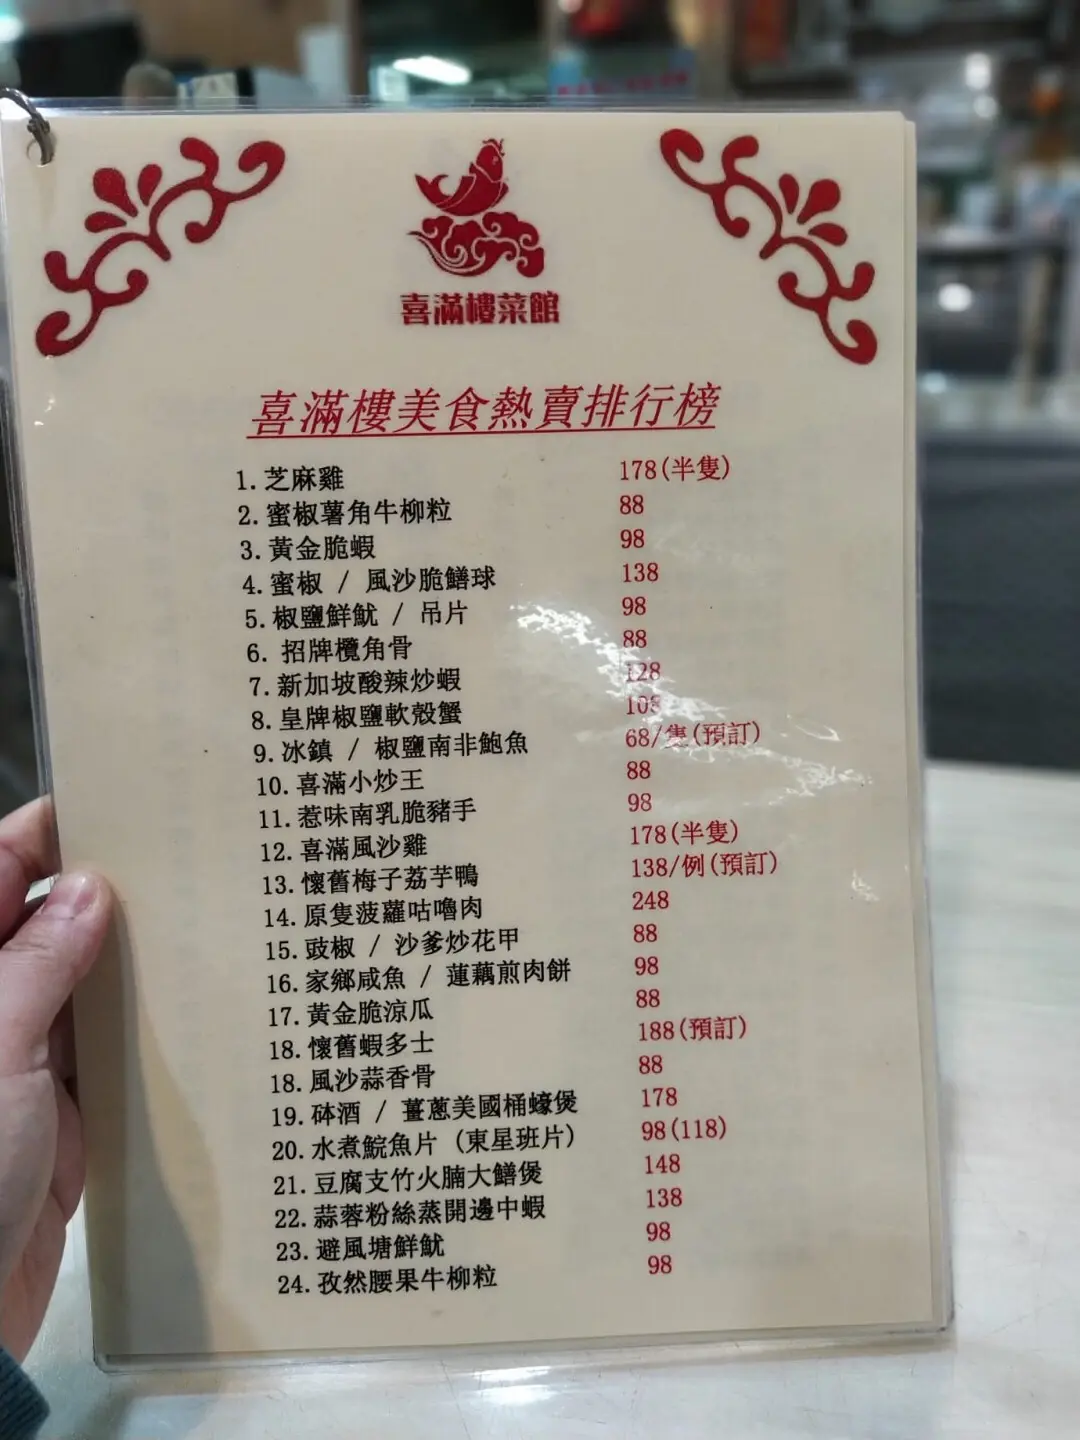 喜滿樓菜館
喜滿樓美食熱賣排行榜
1.芝麻雞 178(半隻)
2.蜜椒薯角牛柳粒 88
3.黃金脆蝦 98
4.蜜椒 / 風沙脆鱔球 138
5.椒鹽鮮魷 / 吊片 98
6. 招牌欖角骨 88
7.新加坡酸辣炒蝦 128
8.皇牌椒鹽軟殼蟹 108
9.冰鎮 / 椒鹽南非鮑魚 68/隻(預訂)
10.喜滿小炒王 88
11.惹味南乳脆豬手 98
12.喜滿風沙雞 178(半隻)
13.懷舊梅子荔芋鴨 138/例(預訂)
14.原隻菠蘿咕嚕肉 248
15.豉椒 / 沙爹炒花甲 88
16.家鄉咸魚 / 蓮藕煎肉餅 98
17.黃金脆涼瓜 88
18.懷舊蝦多士 188(預訂)
18.風沙蒜香骨 88
19.砵酒 / 薑蔥美國桶蠔煲 178
20.水煮鯇魚片 (東星班片) 98(118)
21.豆腐支竹火腩大鱔煲 148
22.蒜蓉粉絲蒸開邊中蝦 138
23.避風塘鮮魷 98
24.孜然腰果牛柳粒 98